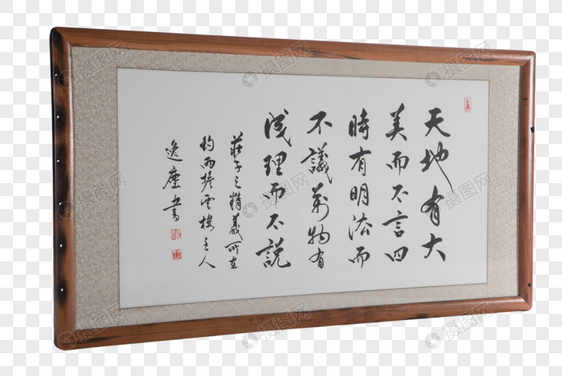 天地有大
美而不言四
時有明法而
不議萬物有
成理而不説
莊子之精義所在
逸塵書
摄图网